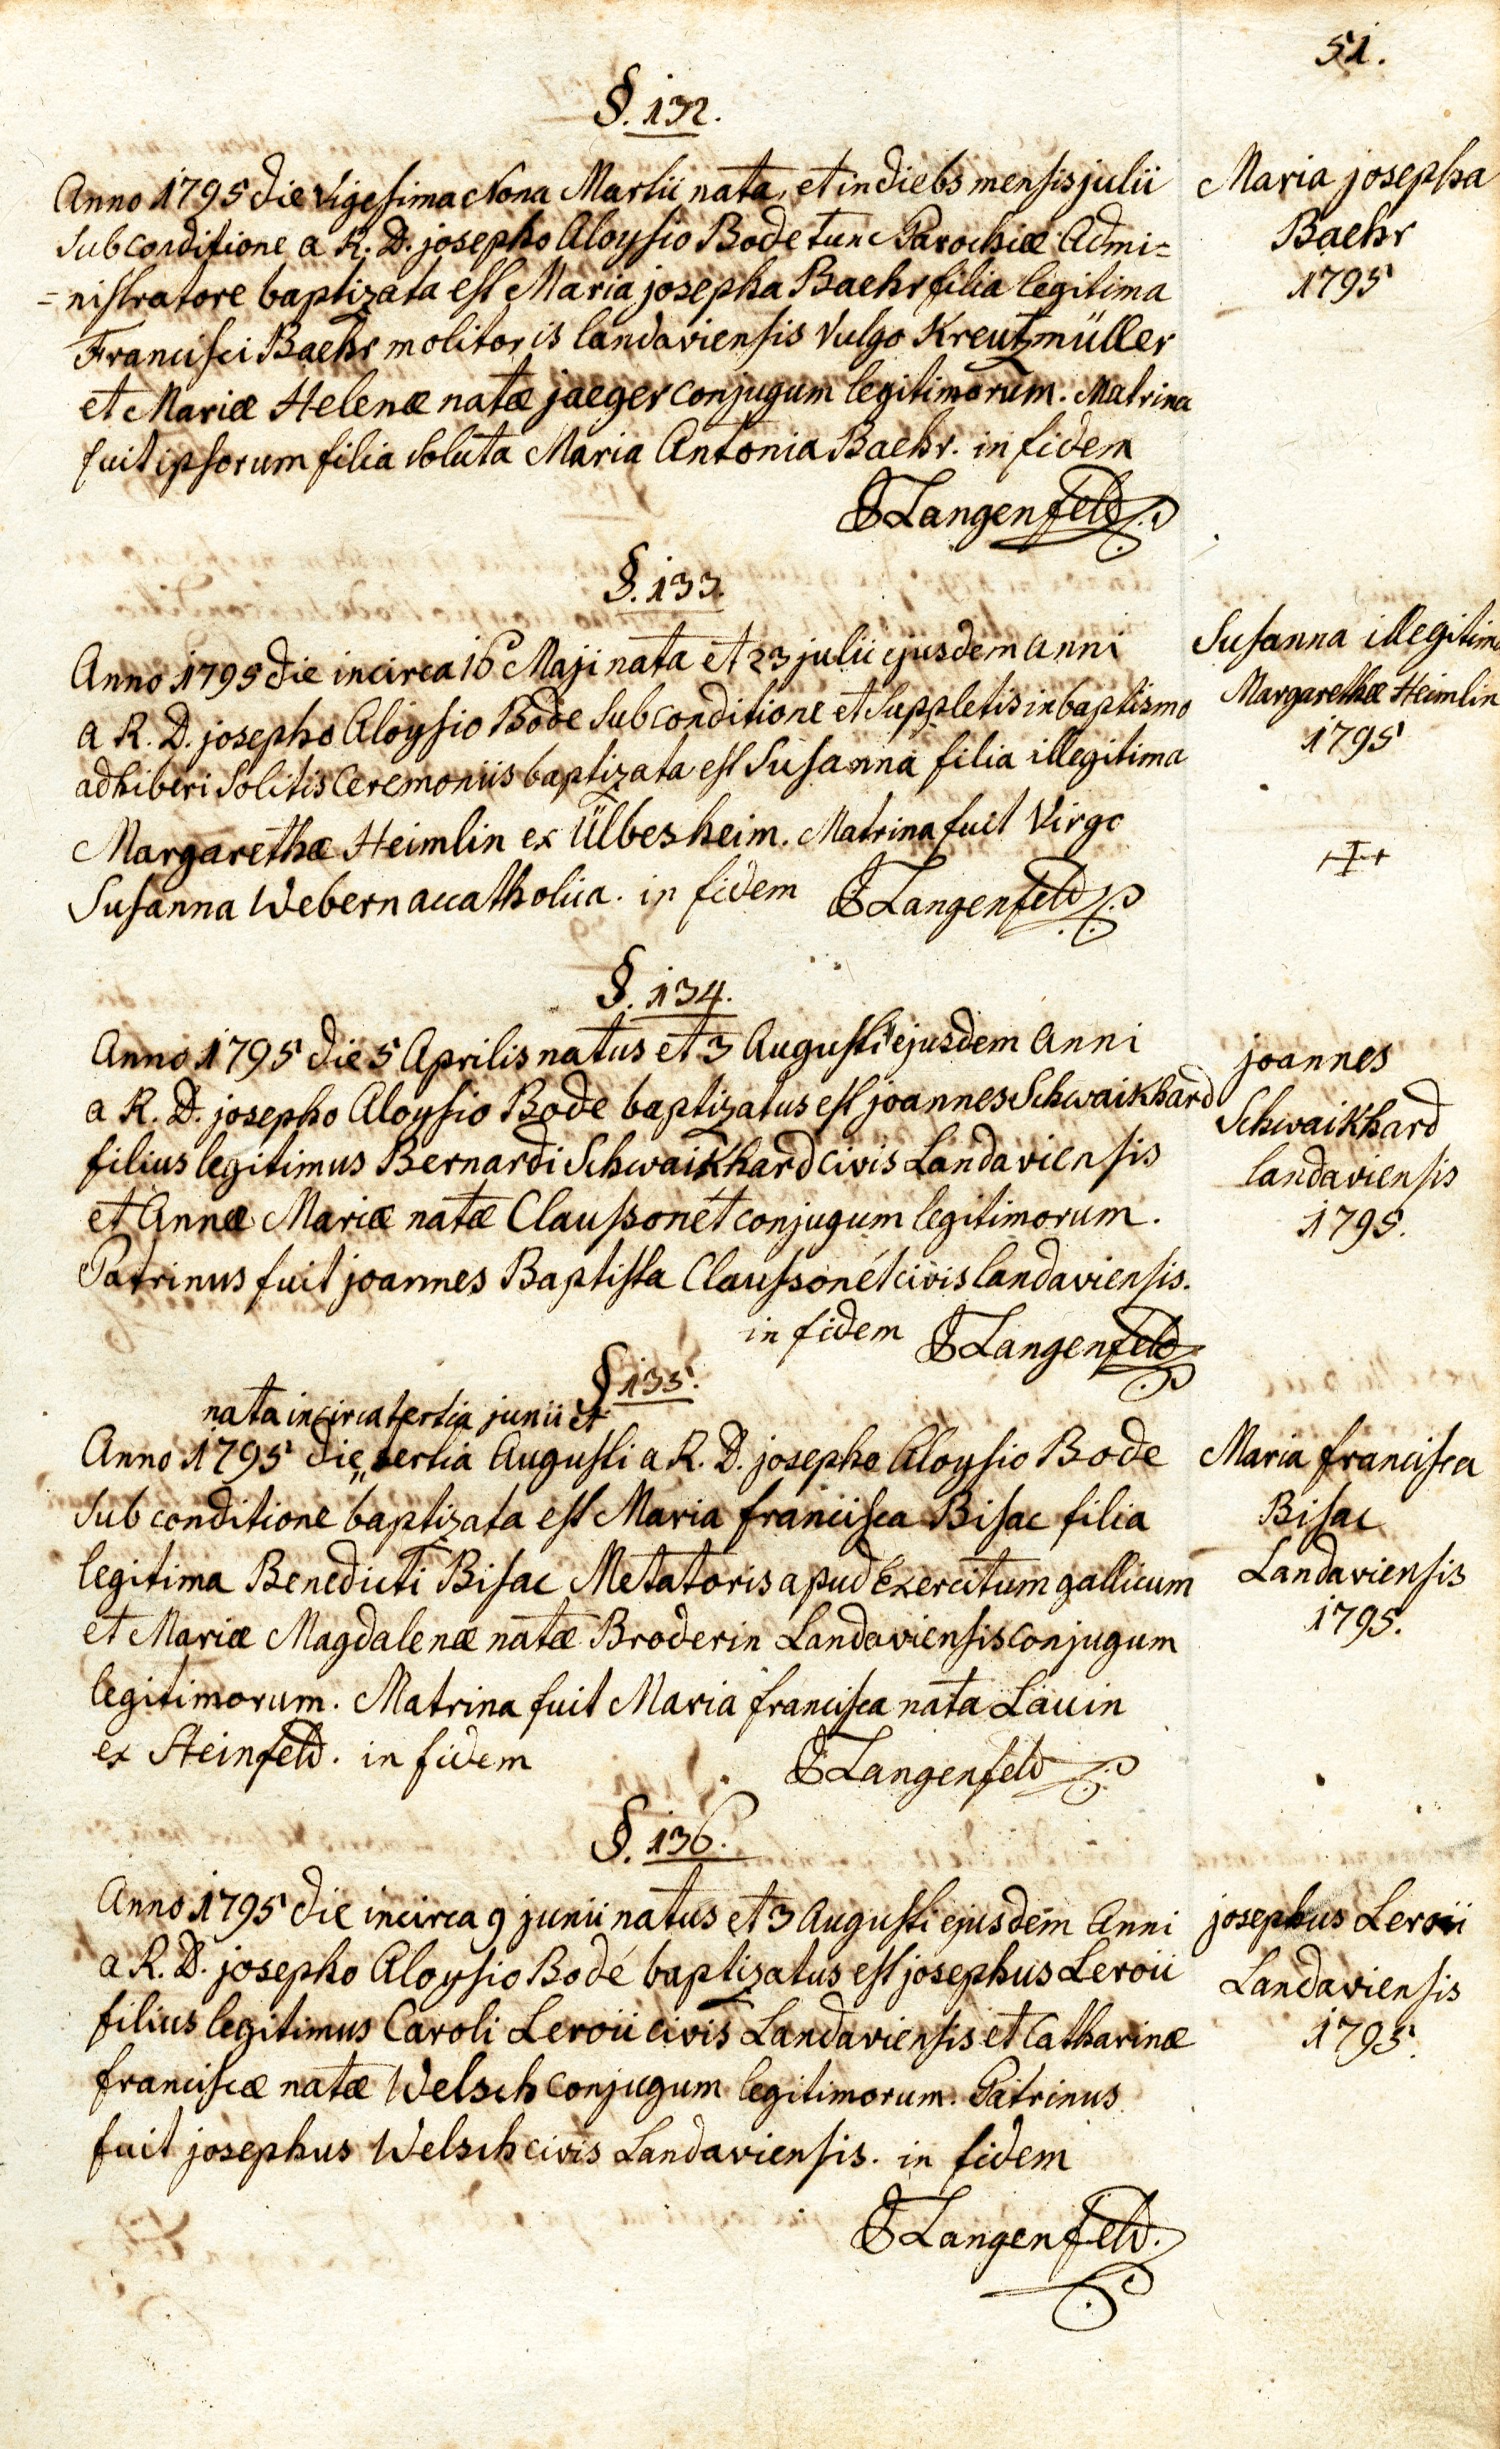 51.
§. 132.
Anno 1795 die Vigesima Nona Martii nata, et in diebs mensis julii
sub conditione a R. D. josepho Aloysio Bode tunc Parochiæ Admi=
=nistratore baptizata est Maria josepha Baehr filia legitima
Francisci Baehr molitoris landaviensis Vulgo Kreutzmüller
et Mariæ Helenæ natæ jaeger conjugum legitimorum. Matrina
fuit ipsorum filia soluta Maria Antonia Baehr. in fidem
Langenfeld
Maria josepha
Baehr
1795
§. 133.
Anno 1795 die incirca 16 Maji nata et 23 julii ejusdem anni
a R. D. josepho Aloysio Bode sub conditione et suppletis in baptismo
adhiberi solitis ceremoniis baptizata est Susanna filia illegitima
Margarethæ Heimlin ex Ülbesheim. Matrina fuit Virgo
Susanna Webern accatholica. in fidem Langenfeld
Susanna illegitima
Margarethæ Heimlin
1795
§. 134.
Anno 1795 die 5 Aprilis natus et 3 Augusti ejusdem anni
a R. D. josepho Aloysio Bode baptizatus est joannes Schwaikhard
filius legitimus Bernardi Schwaikhard civis Landaviensis
et Annæ Mariæ natæ Claussonét conjugum legitimorum.
Patrinus fuit joannes Baptista Claussonét civis landaviensis.
in fidem Langenfeld
joannes
Schwaikhard
landaviensis
1795.
§ 135.
nata incirca tertia junii et
Anno 1795 die „ tertia Augusti a R. D. josepho Aloysio Bode
sub conditione baptizata est Maria francisca Bisac filia
legitima Benedicti Bisac Metatoris apud Exercitum gallicum
et Mariæ Magdalenæ natæ Broderin Landaviensis conjugum
legitimorum. Matrina fuit Maria francisca nata Lauin
ex Steinfeld. in fidem Langenfeld
Maria francisca
Bisac
Landaviensis
1795.
§. 136.
Anno 1795 die incirca 9 junii natus et 3 Augusti ejusdem Anni
a R. D. josepho Aloysio Bode baptizatus est josephus Leroii
filius legitimus Caroli Leroii civis Landaviensis et Catharinæ
franciscæ natæ Welsch conjugum legitimorum. Patrinus
fuit josephus Welsch civis Landaviensis. in fidem
Langenfeld.
josephus Leroii
Landaviensis
1795.